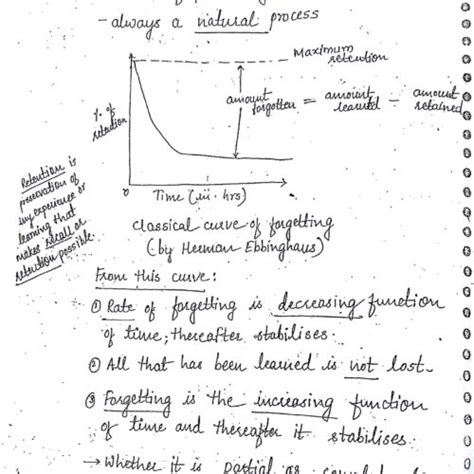 - always a natural process
Maximum
retention
% of
retention
amount
forgotten = amount
learned - amount
retained
0
Time (in hrs)
Retention is
preservation of
any experience or
learning that
makes recall or
retention possible.
Classical curve of forgetting
(by Herman Ebbinghaus)
From this curve:
① Rate of forgetting is decreasing function
of time; thereafter stabilises.
② All that has been learned is not lost.
③ Forgetting is the increasing function
of time and thereafter it stabilises.
→ Whether it is partial or